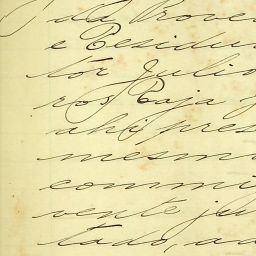 da Prove
e Residu
tor Julio
ros Raja
ahi pres
mesm
commi
vente ju
tado, au